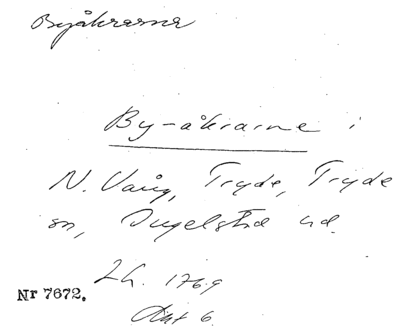 Byåkrarna
By-åkrarne i
N. Vång, Tryde, Tryde
sn, Ingelstad hd.
Lh. 1769
Akt 6
Nr 7672.